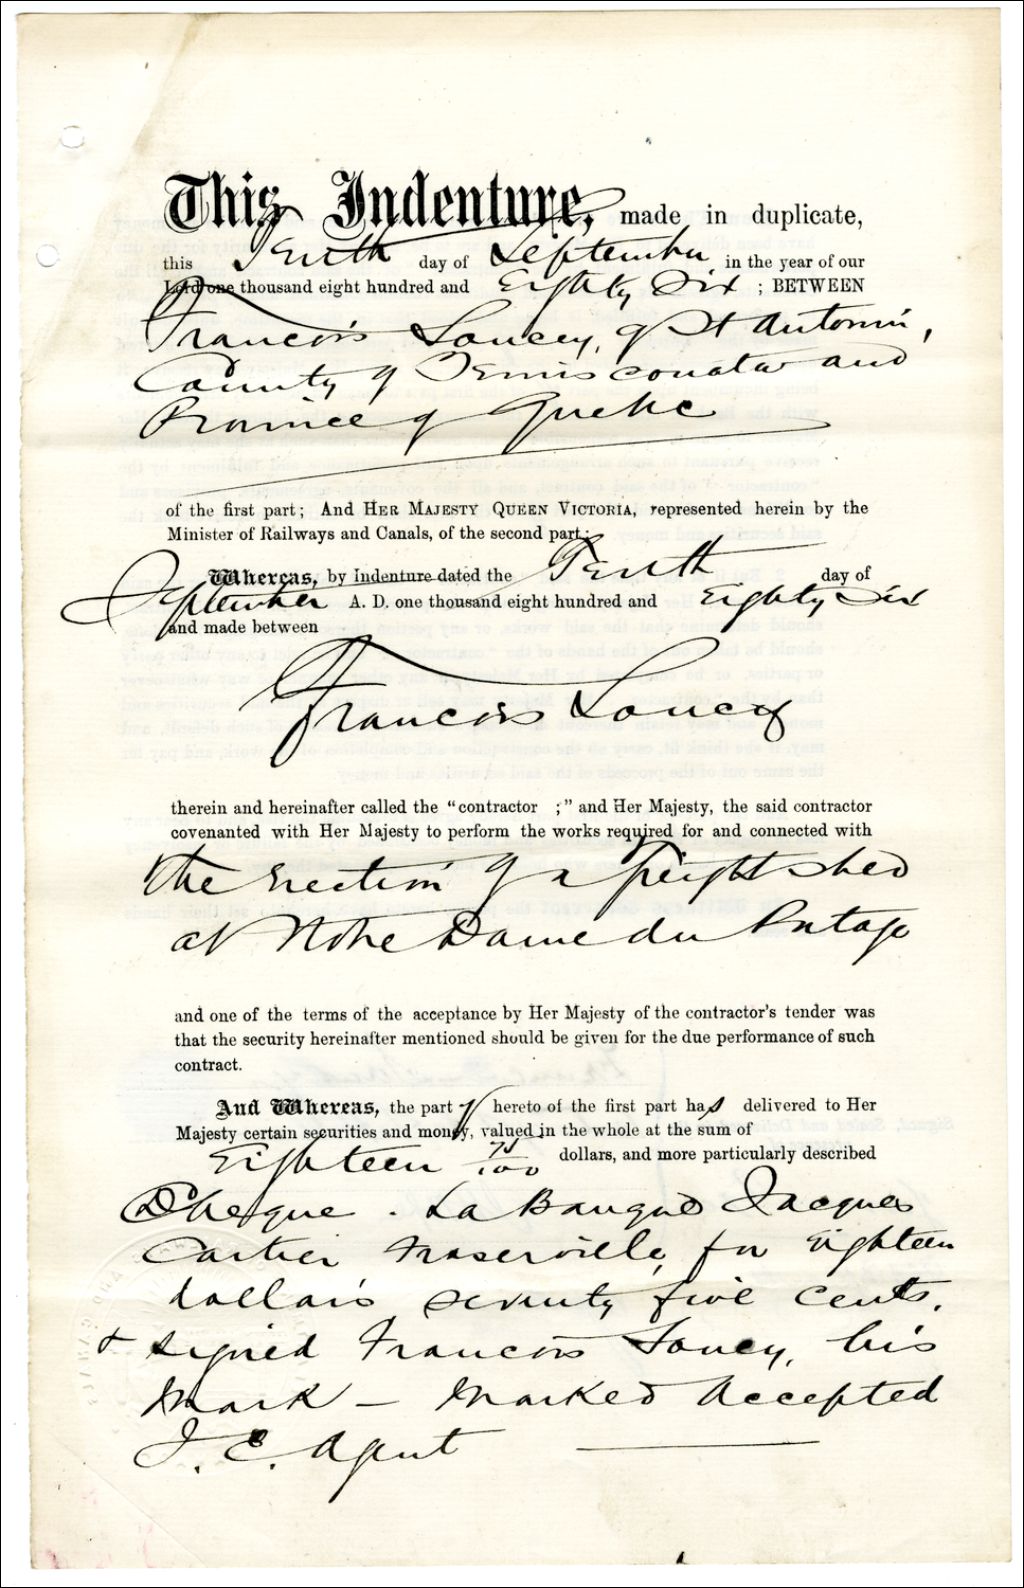 This Indenture, made in duplicate,
this Tenth day of September in the year of our
Lord one thousand eight hundred and Eighty Six ; BETWEEN
Francois Soucy, of St Antonin,
County of Temisconata and
Province of Quebec
of the first part; And HER MAJESTY QUEEN VICTORIA, represented herein by the
Minister of Railways and Canals, of the second part:
Whereas, by Indenture dated the Tenth day of
September A. D. one thousand eight hundred and Eighty Six
and made between
Francois Soucy
therein and hereinafter called the "contractor ;" and Her Majesty, the said contractor
covenanted with Her Majesty to perform the works required for and connected with
the Erection of a freight shed
at Notre Dame du Portage
and one of the terms of the acceptance by Her Majesty of the contractor's tender was
that the security hereinafter mentioned should be given for the due performance of such
contract.
And Whereas, the part y hereto of the first part has delivered to Her
Majesty certain securities and money, valued in the whole at the sum of
Eighteen 75/100 dollars, and more particularly described
Cheque . La Banque Jacques
Cartier Fraserville, for Eighteen
dollars seventy five cents,
& signed Francois Soucy, his
Mark – Marked Accepted
J. C. Agent